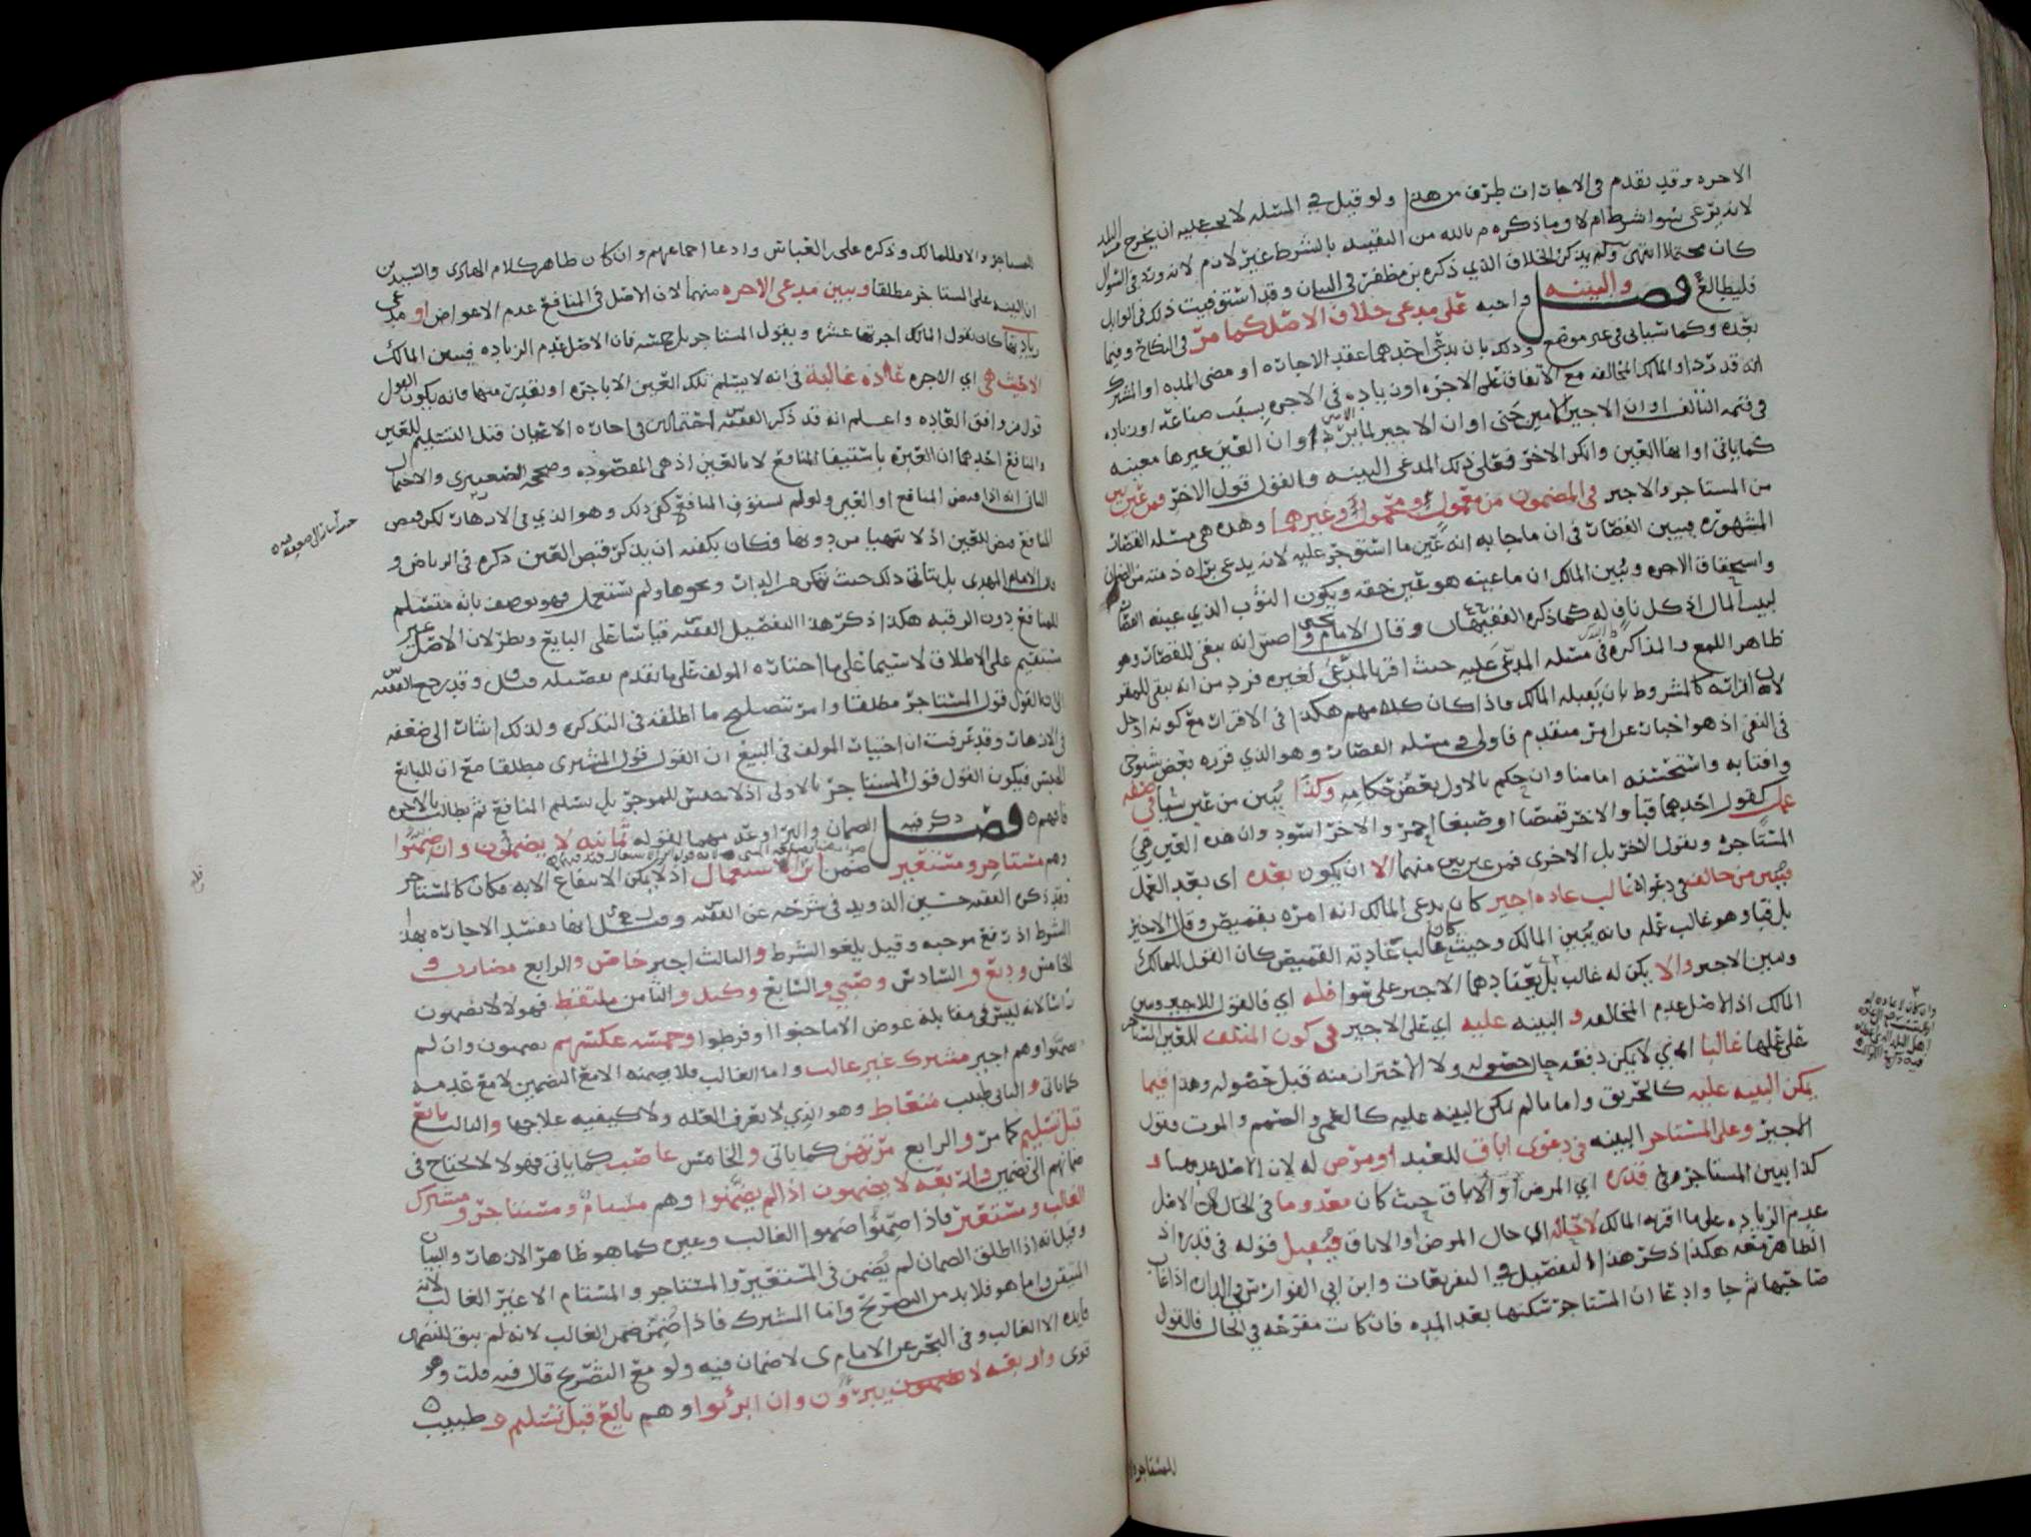 الاجره وقد تقدم في الاجارات طرف من هذا ولو قيل في المسئله لا يجب عليه ان يخرج من البلد
لانه يدعى سوا شرط ام لا وما ذكره م بالله من التقييد بالشرط غير لازم لانه ورد في السوال
كان محتملا انتهى ولم يذكر الخلاف الذي ذكره بن مظفر في البيان وقد استوفيت ذلك في الوابل
فليطالع فصل والبينه واجبه على مدعي خلاف الاصل كما مر في النكاح وفيما
بعده وكما سياتي في غير موضع وذلك بان يدعي احدهما عقد الاجاره او مضي المده او المشترك
انه قد رد او المالك المخالفه مع الاتفاق على الاجره او زياده في الاجره بسبب صناعه او زياده
في قيمه التالف او ان الاجير الامين جنى او ان الاجير لما يرد او ان العين غيرها معينه
كما ياتي او ابهما العين وانكر الاخر فعلى ذلك المدعي البينه والقول قول الاخر فمن عين
من المستاجر والاجير في المضمون من معمول ومحمول وغيرهما وهذه هي مسئله القصار
المشهوره فيبين القصار في ان ما جا به انه عين ما استوجر عليه لانه يدعي براه ذمته من الضمان
واستحقاق الاجره ويبين المالك ان ما عينه هو عين حقه ويكون الثوب الذي عينه القصار
لبيت المال اذ كل ناف له كما ذكره الفقيهان وقال الامام يحيى و اصش انه يبقى للقصار وهو
ظاهر اللمع والمذاكره في مسئله المدعى عليه حيث اقر بالمدعى لغيره فرد من انه يبقى للمقر
لان اقراره كالمشروط بان يقبله المالك فاذا كان كلامهم هكذا في الاقرار مع كونه ادخل
في النفي اذ هو اخبار عن امر متقدم فاولى في مسئله القصار وهو الذي قرره بعض شيوخي
وافتا به واستحسنه امامنا وان حكم بالاول بعض حكامه وكذا يبين من عين شيا في صفه
عمل كقول احدهما قبا والاخر قميصا او صبغا احمر والاخر اسود وان هذه العين هي
المستاجره ويقول الاخر بل الاخرى فمن عين بين منهما الا ان يكون بعده اى بعد العمل
فيبين من خالف في دعواه غالب عاده اجير كان يدعي المالك انه امره بقميص وقال الاجير
بل قبا وهو غالب عمله فانه يبين المالك وحيث كان غالب عادته القميص كان القول للمالك
ويبين الاجير والا يكن له غالب بل يعتادهما الاجير على سوا فله اي فالقول للاجير ويبين
المالك اذ الاصل عدم المخالفه والبينه عليه اي على الاجير في كون المتلف للعين المستاجر
على عملها غالبا الذي لا يمكن دفعه حال حصوله ولا الاحتراز منه قبل حصوله وهذا فيما
يمكن البينه عليه كالحريق واما ما لم يمكن البينه عليه كالعمى والصمم والموت فقول
الاجير وعلى المستاجر البينه في دعوى اباق للعبد او مرض له لان الاصل عدمهما و
كذا يبين المستاجر في قدره اي المرض او الاباق حيث كان معدوما في الحال لان الاصل
عدم الزياده على ما اقر به المالك لا حاله اي حال المرض او الاباق فيقبل قوله في قدره اذ
الظاهر معه هكذا ذكر هذا التفصيل في التفريعات وابن ابي الفوارس في الدار اذا غاب
صاحبها ثم جا وادعا ان المستاجر سكنها بعد المده فان كانت مفرغه في الحال فالقول
للمستاجر
وان كان لا عاده له
للمستاجر والا فللمالك وذكره على بن العباس وادعا اجماعهم وان كان ظاهر كلام الهادي والسيدين
ان البينه على المستاجر مطلقا ويبين مدعي الاجره منهما لان الاصل في المنافع عدم الاعواض او مدعي
زيادتها كان يقول المالك اجرتها عشره ويقول المستاجر بل خمسه فان الاصل عدم الزياده فيبين المالك
الا حيث هي اي الاجره عاده غالبه في انه لا يسلم تلك العين الا باجره او بقدر منها فانه يكون القول
قول من وافق العاده واعلم انه قد ذكر الفقيه س احتمالين في اجاره الاعيان قبل التسليم للعين
والمنافع احدهما ان العبره باستيفا المنافع لا بالعين اذ هي المقصوده وصححه الصعيتري والاحتمال
الثاني انه اذا قبض المنافع او العين ولو لم يستوف المنافع كفى ذلك وهو الذي في الازهار لكن قبض
المنافع قبض للعين اذ لا يتهيا من دونها فكان يكفيه ان يذكر قبض العين ذكره في الرياض و
قال الامام المهدي بل يتاتى ذلك حيث تمكن من الدار ونحوها ولم يستعمل فهو يوصف بانه متسلم
للمنافع دون الرقبه هكذا ذكر هذا التفصيل الفقيه س قياسا على البايع ونظر لان الاصل غير
مستقيم على الاطلاق لا سيما على ما اختاره المولف على ما تقدم تفصيله وقد رجح الفقيه
ان القول قول المستاجر مطلقا وامر بتصليح ما اطلقه في التذكره ولذلك اشار الى ضعفه
في الازهار وقد عرفت ان اختيار المولف في البيع ان القول قول المشتري مطلقا مع ان للبايع
الحبس فيكون القول قول المستاجر بالاولى اذ لا حبس للموجر بل يسلم المنافع ثم يطالب بالاجره
فافهم ٥ فصل ذكر فيه الضمان والبراء وعدمهما بقوله ثمانيه لا يضمنون وان ضمنوا
وهم مستاجر ومستعير ضمن اثر الاستعمال اذ لا يمكن الانتفاع الا به فكان كالمستاجر
وقد ذكره الفقيه حسين الذويد في شرحه عن الفقيه وقيل انها تفسد الاجاره بهذا
الشرط اذ رفع موجبه وقيل يلغو الشرط والثالث اجير خاص والرابع مضارب و
الخامس وديع والسادس وصي والسابع وكيل والثامن ملتقط فهولا لا يضمنون
راسا لانه ليس في مقابله عوض الا ما جنوا او فرطوا وخمسه عكسهم يضمنون وان لم
يضمنوا وهم اجير مشترك غير غالب واما الغالب فلا يضمنه الا مع التضمين لا مع عدمه
كما ياتي والثاني طبيب متعاط وهو الذي لا يعرف العله ولا كيفيه علاجها والثالث بايع
قبل تسليم كما مر والرابع مرتهن كما ياتي والخامس غاصب كما ياتي فهولا لا يحتاج في
ضمانهم الى تضمين واربعه لا يضمنون اذا لم يضمنوا وهم مستام ومستاجر ومشترك
الغالب ومستعير فاذا ضمنوا ضمنوا الغالب وغيره كما هو ظاهر الازهار والبيان
وقيل انه اذا اطلق الضمان لم يضمن في المستعير والمستاجر والمستام الا غير الغالب لانه
المتيقن واما هو فلا بد من التصريح واما المشترك فاذا ضمن ضمن الغالب لانه لم يبق للتضمين
فايده الا الغالب وفي البحر عن الامام ى لا ضمان فيه ولو مع التصريح قال فيه قلت وهو
قوى واربعه لا يبرؤن وان ابرئوا وهم بايع قبل تسليم وطبيب